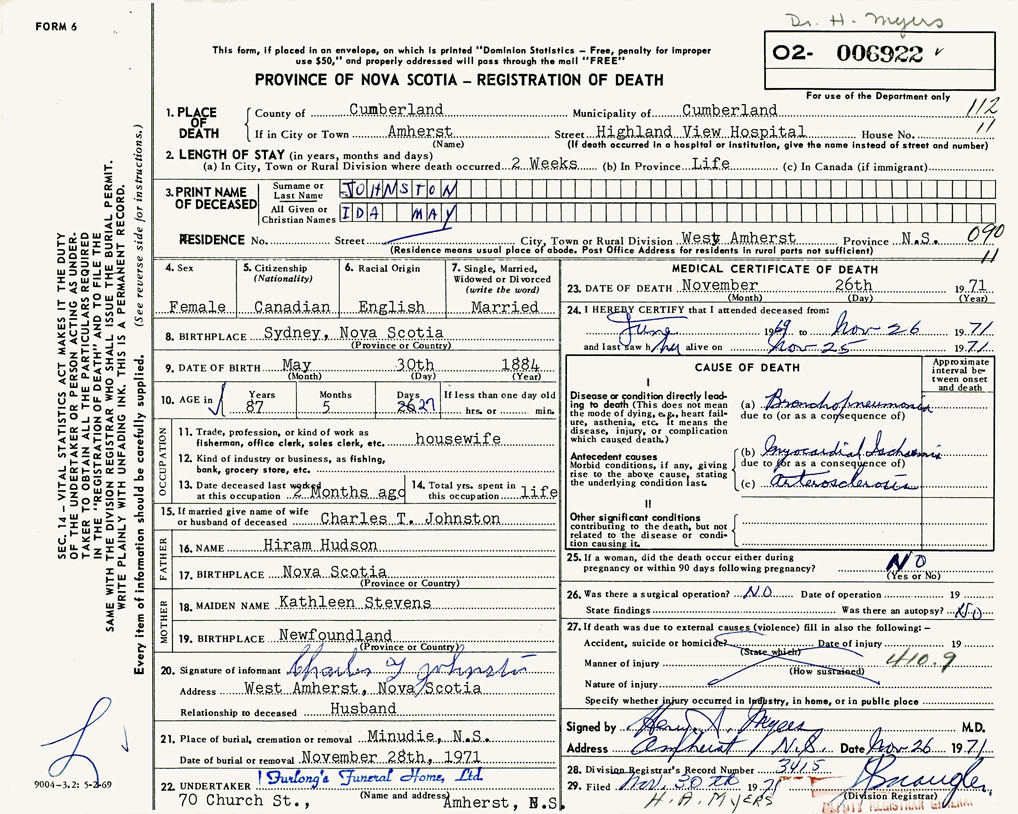 Dr. H. Myers
FORM 6
O2- 006922
For use of the Department only
This form, if placed in an envelope, on which is printed "Dominion Statistics – Free, penalty for improper
use $50," and properly addressed will pass through the mail "FREE"
PROVINCE OF NOVA SCOTIA – REGISTRATION OF DEATH
112
11
1. PLACE OF DEATH
County of Cumberland Municipality of Cumberland
If in City or Town Amherst Street Highland View Hospital House No.
(Name) (If death occurred in a hospital or institution, give the name instead of street and number)
2. LENGTH OF STAY (in years, months and days)
(a) In City, Town or Rural Division where death occurred 2 Weeks (b) In Province Life (c) In Canada (if immigrant)
3. PRINT NAME OF DECEASED
Surname or Last Name JOHNSTON
All Given or Christian Names IDA MAY
RESIDENCE No. Street City, Town or Rural Division West Amherst Province N.S. 090
(Residence means usual place of abode. Post Office Address for residents in rural parts not sufficient) 11
4. Sex
Female
5. Citizenship
(Nationality)
Canadian
6. Racial Origin
English
7. Single, Married,
Widowed or Divorced
(write the word)
Married
8. BIRTHPLACE Sydney, Nova Scotia
(Province or Country)
9. DATE OF BIRTH May 30th 1884
(Month) (Day) (Year)
10. AGE in
Years Months Days If less than one day old
87 5 26 27 hrs. or min.
OCCUPATION
11. Trade, profession, or kind of work as
fisherman, office clerk, sales clerk, etc. housewife
12. Kind of industry or business, as fishing,
bank, grocery store, etc.
13. Date deceased last worked
at this occupation 2 Months ago
14. Total yrs. spent in
this occupation life
15. If married give name of wife
or husband of deceased Charles T. Johnston
FATHER
16. NAME Hiram Hudson
17. BIRTHPLACE Nova Scotia
(Province or Country)
MOTHER
18. MAIDEN NAME Kathleen Stevens
19. BIRTHPLACE Newfoundland
(Province or Country)
20. Signature of informant Charles T Johnston
Address West Amherst, Nova Scotia
Relationship to deceased Husband
21. Place of burial, cremation or removal Minudie, N.S.
Date of burial or removal November 28th, 1971
22. UNDERTAKER Furlong's Funeral Home, Ltd.
(Name and address)
70 Church St., Amherst, N.S.
MEDICAL CERTIFICATE OF DEATH
23. DATE OF DEATH November 26th 1971
(Month) (Day) (Year)
24. I HEREBY CERTIFY that I attended deceased from:
June 1969 to Nov 26 1971
and last saw her alive on Nov 25 1971
CAUSE OF DEATH
Approximate
interval be-
tween onset
and death
I
Disease or condition directly lead-
ing to death (This does not mean
the mode of dying, e.g., heart fail-
ure, asthenia, etc. It means the
disease, injury, or complication
which caused death.)
(a) Bronchopneumonia
due to (or as a consequence of)
Antecedent causes
Morbid conditions, if any, giving
rise to the above cause, stating
the underlying condition last.
(b) Myocardial Ischaemia
due to (or as a consequence of)
(c) Arteriosclerosis
II
Other significant conditions
contributing to the death, but not
related to the disease or condi-
tion causing it.
25. If a woman, did the death occur either during
pregnancy or within 90 days following pregnancy? NO
(Yes or No)
26. Was there a surgical operation? NO Date of operation 19
State findings Was there an autopsy? NO
27. If death was due to external causes (violence) fill in also the following:–
Accident, suicide or homicide? Date of injury 19
(State which)
Manner of injury 410.9
(How sustained)
Nature of injury
Specify whether injury occurred in industry, in home, or in public place
Signed by Henry A. Myers M.D.
Address Amherst / N.S. Date Nov 26 1971
28. Division Registrar's Record Number 3415
29. Filed Nov. 30th 1971
(Division Registrar)
H. A. MYERS
DEPUTY REGISTRAR GENERAL
SEC. 14 – VITAL STATISTICS ACT MAKES IT THE DUTY
OF THE UNDERTAKER OR PERSON ACTING AS UNDER-
TAKER TO OBTAIN ALL THE PARTICULARS REQUIRED
IN THE "REGISTRATION OF DEATH" AND TO FILE THE
SAME WITH THE DIVISION REGISTRAR WHO SHALL ISSUE THE BURIAL PERMIT.
WRITE PLAINLY WITH UNFADING INK. THIS IS A PERMANENT RECORD.
Every item of information should be carefully supplied. (See reverse side for instructions.)
9004-3.2: 5-2-69